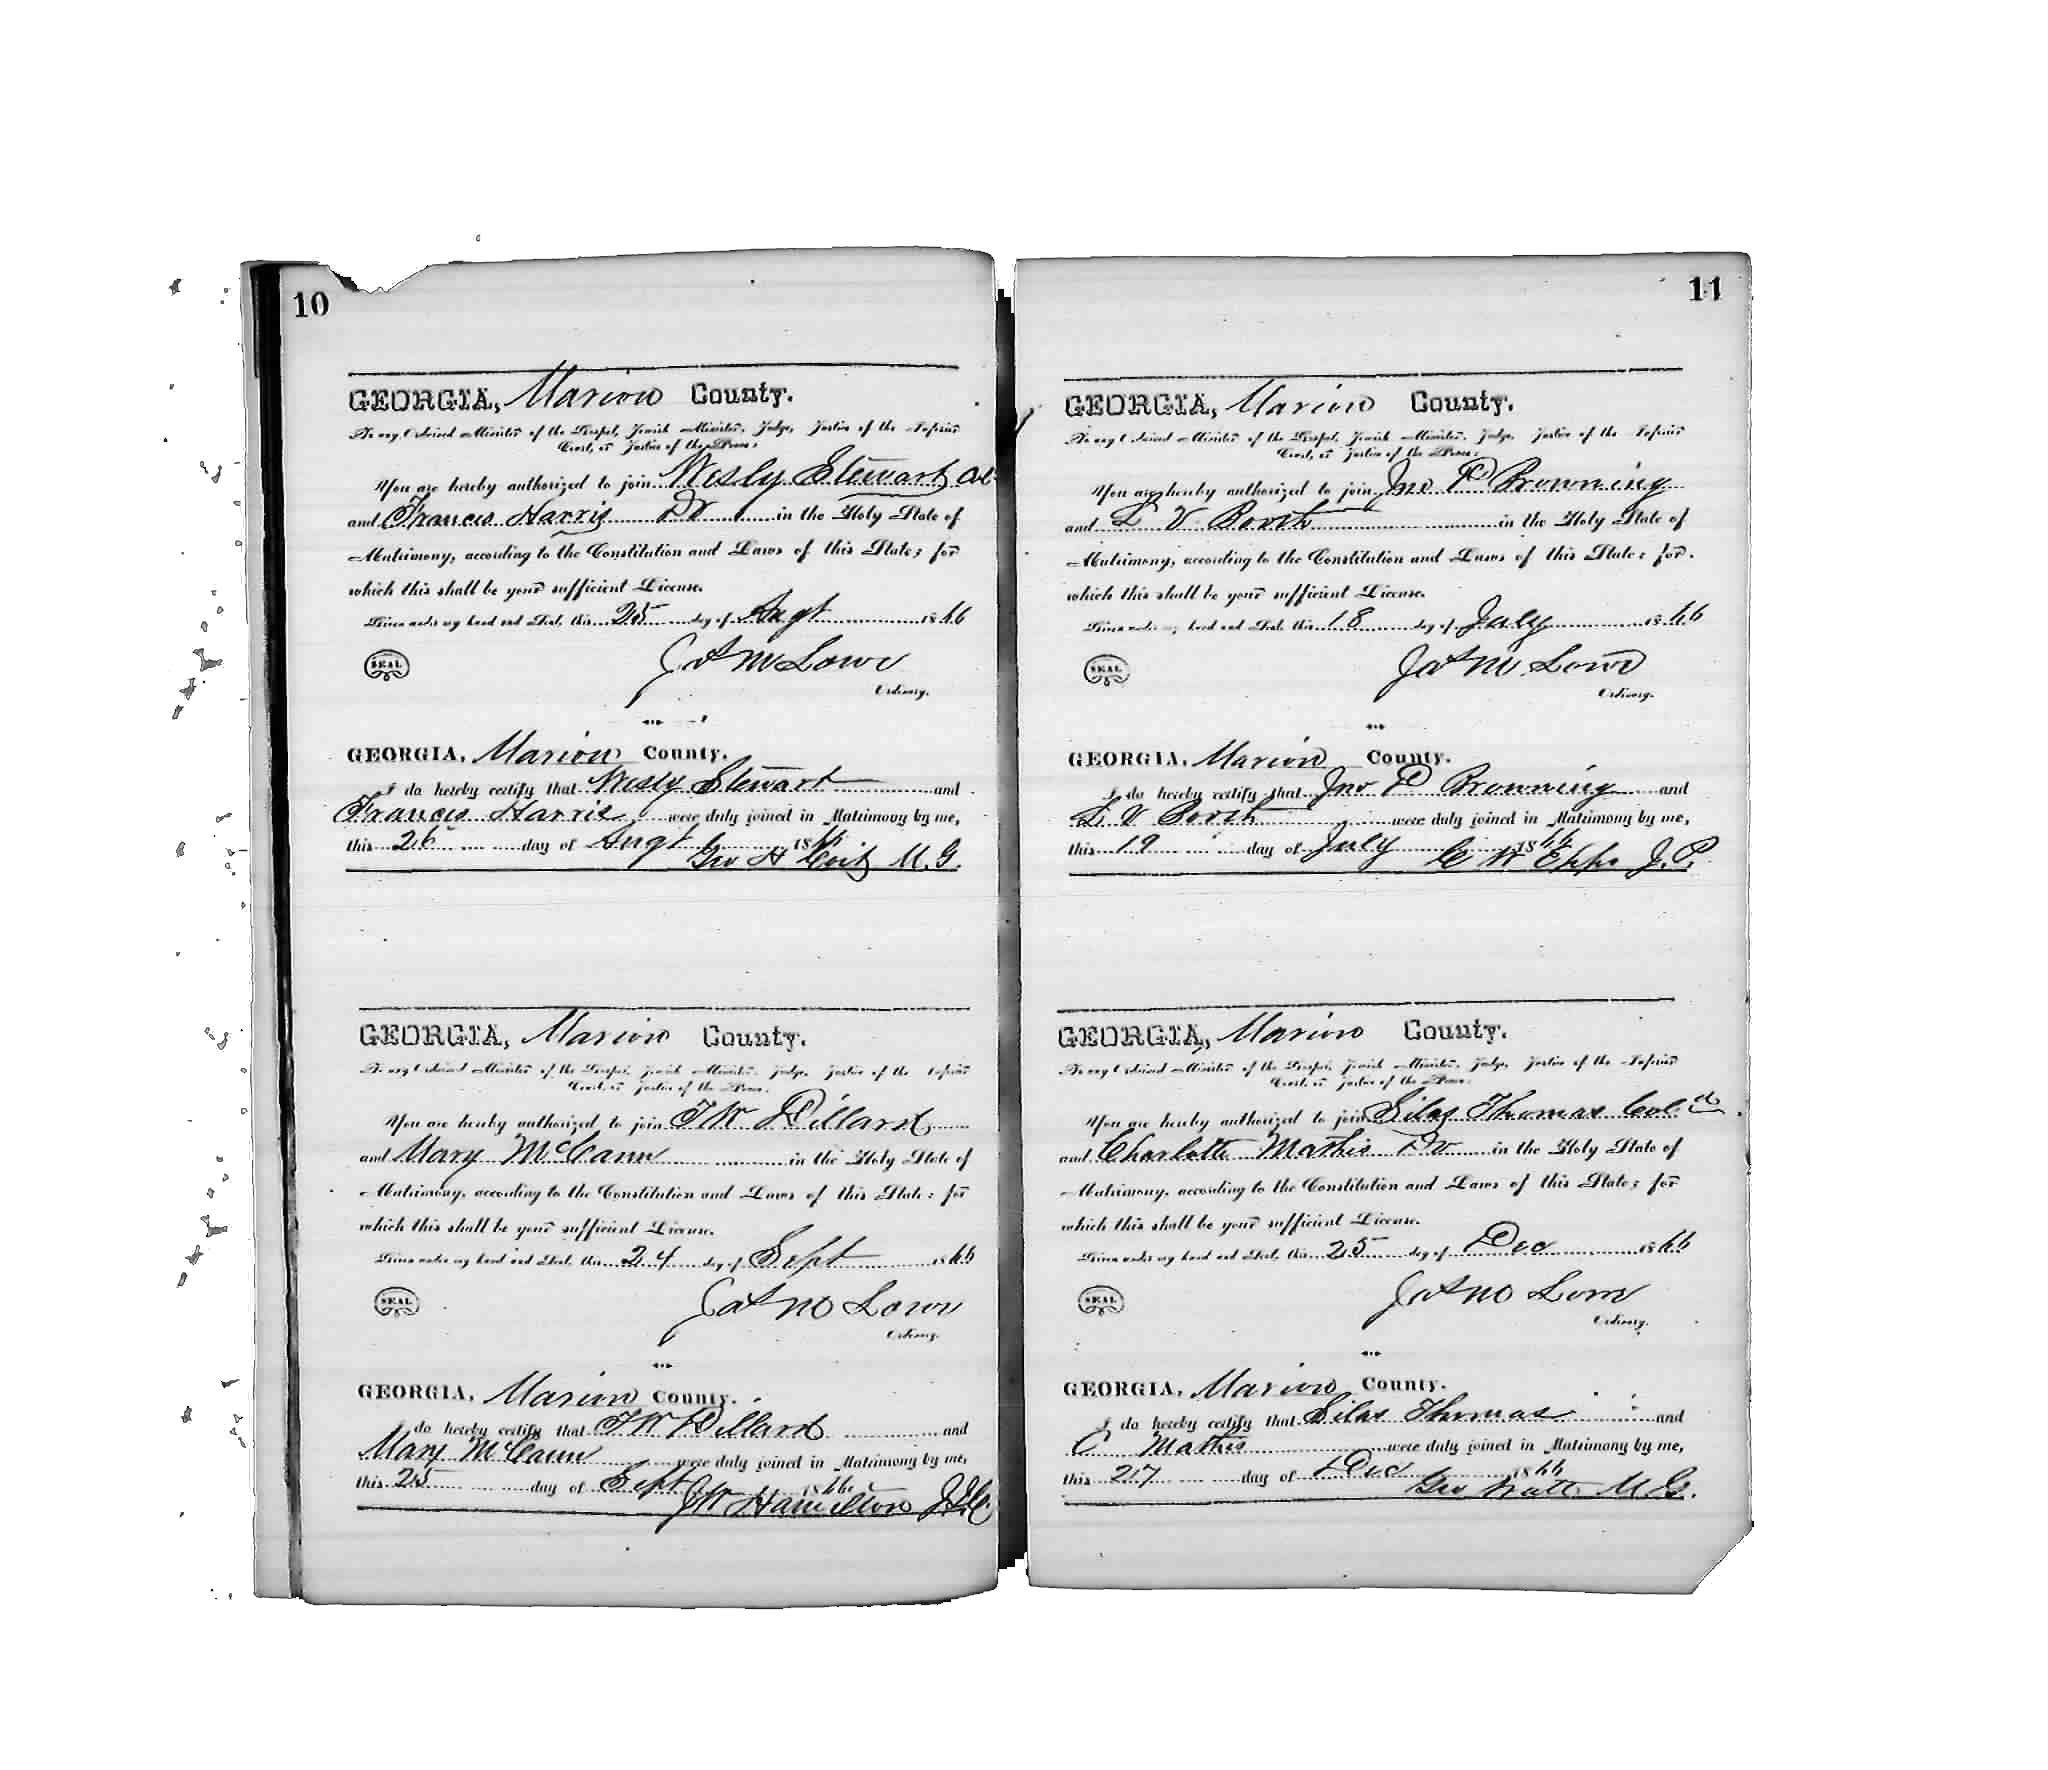 10
GEORGIA, Marion County.
To any Ordained Minister of the Gospel, Jewish Minister, Judge, Justice of the Inferior
Court, or Justice of the Peace:
You are hereby authorized to join Wesly Stewart Col
and Francis Harris Do in the Holy State of
Matrimony, according to the Constitution and Laws of this State; for
which this shall be your sufficient License.
Given under my hand and Seal, this 25 day of Augt 1866
SEAL Jas M Lowe
Ordinary.
GEORGIA, Marion County.
I do hereby certify that Wesly Stewart and
Francis Harris were duly joined in Matrimony by me,
this 26 day of Augt 1866
Geo H M. G.
GEORGIA, Marion County.
To any Ordained Minister of the Gospel, Jewish Minister, Judge, Justice of the Inferior
Court, or Justice of the Peace:
You are hereby authorized to join T W Dillard
and Mary McCann in the Holy State of
Matrimony, according to the Constitution and Laws of this State: for
which this shall be your sufficient License.
Given under my hand and Seal, this 24 day of Sept 1866
SEAL Jas M Lowe
Ordinary.
GEORGIA, Marion County.
I do hereby certify that T W Dillard and
Mary McCann were duly joined in Matrimony by me,
this 25 day of Sept 1866
J W Hamilton
11
GEORGIA, Marion County.
To any Ordained Minister of the Gospel, Jewish Minister, Judge, Justice of the Inferior
Court, or Justice of the Peace:
You are hereby authorized to join Jno D Browning
and L V in the Holy State of
Matrimony, according to the Constitution and Laws of this State: for
which this shall be your sufficient License.
Given under my hand and Seal, this 18 day of July 1866
SEAL Jas M. Lowe
Ordinary.
GEORGIA, Marion County.
I do hereby certify that Jno D Browning and
L V were duly joined in Matrimony by me,
this 19 day of July 1866
C W Epps J. P.
GEORGIA, Marion County.
To any Ordained Minister of the Gospel, Jewish Minister, Judge, Justice of the Inferior
Court, or Justice of the Peace:
You are hereby authorized to join Silas Thomas Col.
and Charlotte Mathis Do in the Holy State of
Matrimony, according to the Constitution and Laws of this State; for
which this shall be your sufficient License.
Given under my hand and Seal, this 25 day of Dec 1866
SEAL Jas M Lowe
Ordinary.
GEORGIA, Marion County.
I do hereby certify that Silas Thomas and
C Mathis were duly joined in Matrimony by me,
this 27 day of Dec 1866
Geo M. G.